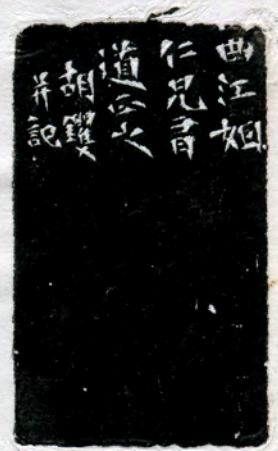 曲江姻
仁兄書
道正之
胡钁
并記